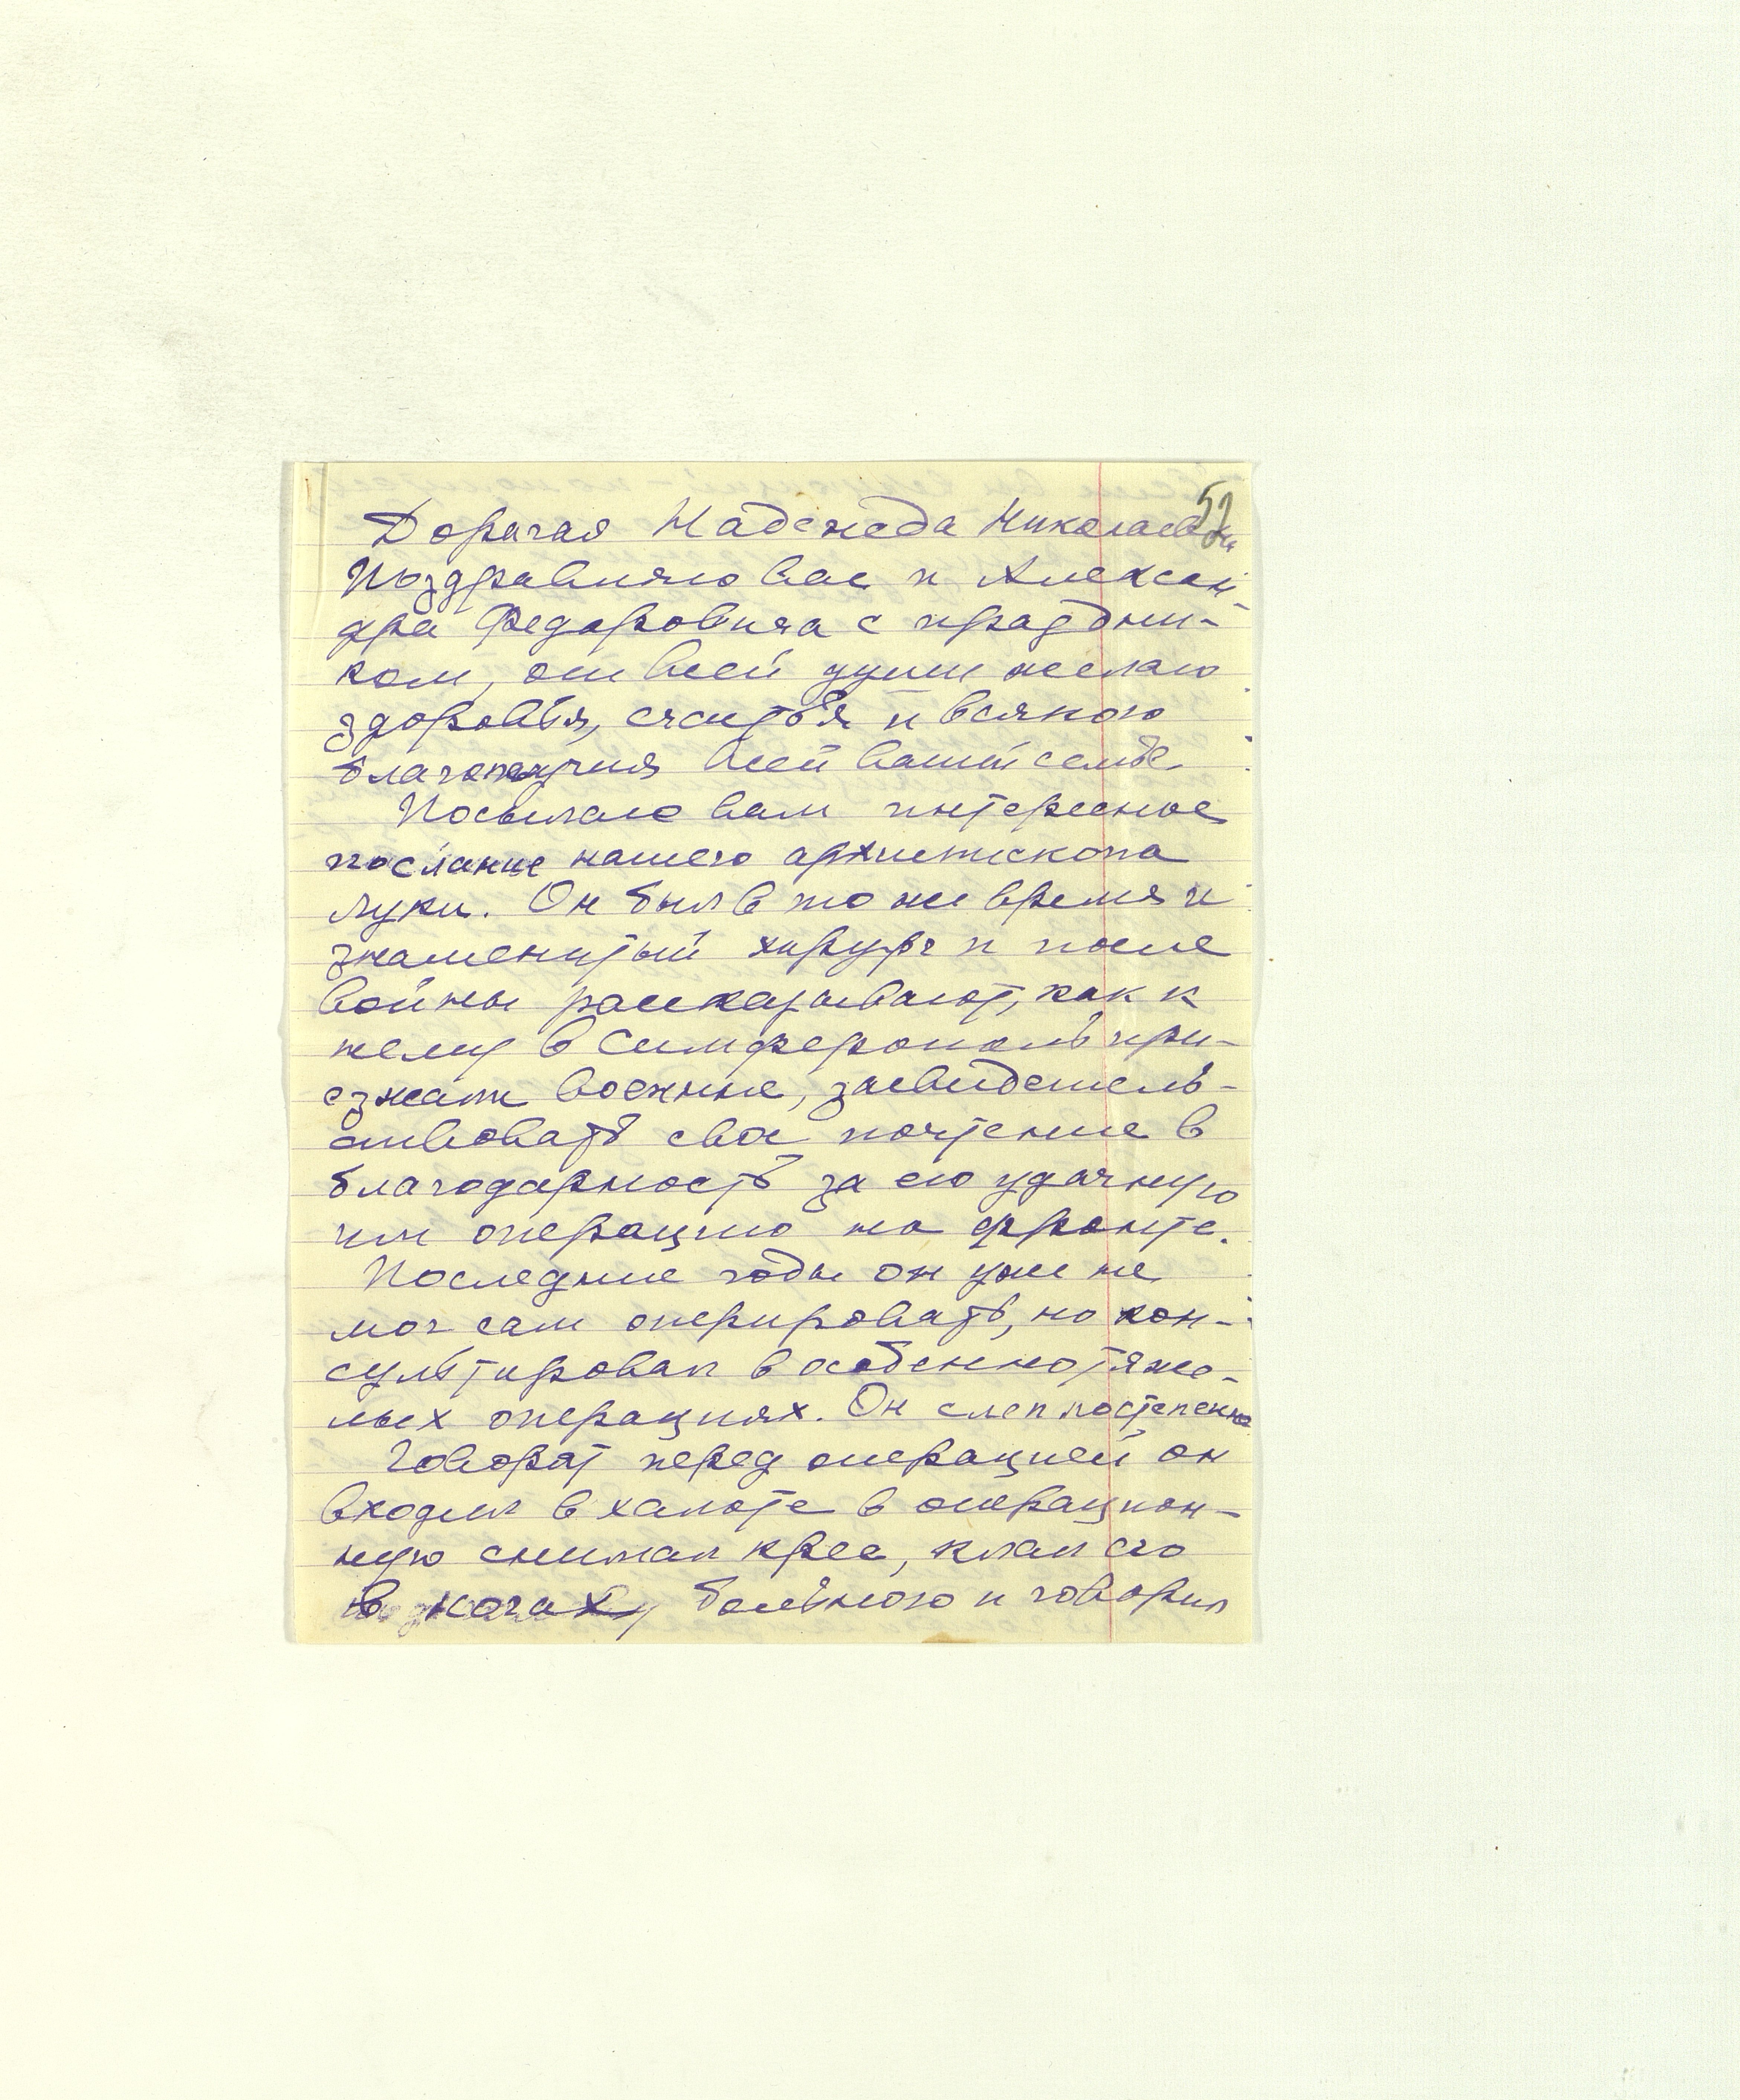 52
Дорогая Надежда Николаевна
Поздравляю вас и Алексан-
дра Федоровича с праздни-
ком, от всей души желаю
здоровья, счастья и всякого
благополучия всей вашей семье.
Посылаю вам интересное
послание нашего архиепископа
Луки. Он был в то же время и
знаменитый хирург и после
войны рассказывают, как к
нему в Симферополь при-
езжали военные, засвидетель-
ствовать свое почтение в
благодарность за его удачную
им операцию на фронте.
Последние годы он уже не
мог сам оперировать, но кон-
сультировал в особенно тяже-
лых операциях. Он слеп постепенно
Говорят перед операцией он
входил в халате в операцион-
ную снимал крест, клал его
в ногах больного и говорил